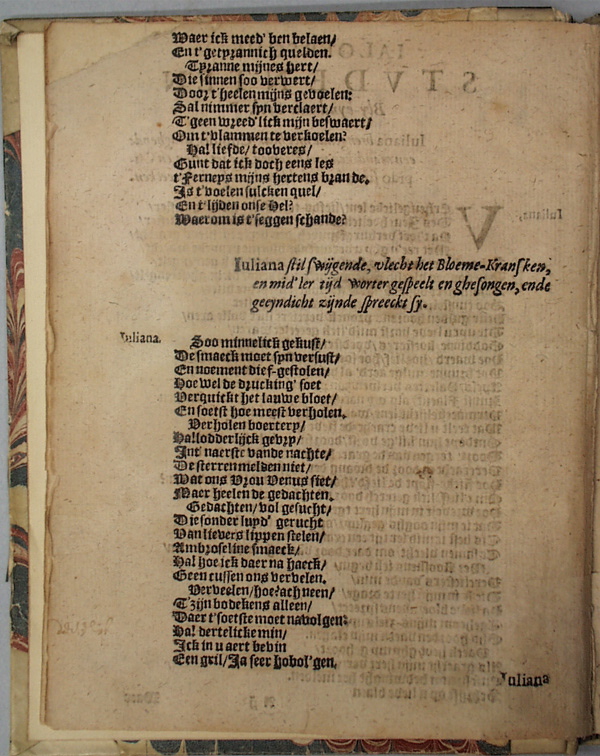 Waer ick meed' ben belaen/
En t'getyrannich quelden.
Tyranne mijnes hert/
Die sinnen soo verwert/
Door t'heelen mijns gevoelen:
Sal nimmer syn verclaert/
T'geen wreed'lick mijn beswaert/
Om t'vlammen te verkoelen?
Ha! liefde/ tooveres/
Gunt dat ick doch eens les
t'Ferneys mijns hertens brande.
Is t'voelen sulcken quel/
En t'lijden onse Hel?
Waerom is t'seggen schande?
Iuliana stil swijgende, vlecht het Bloeme-Kransken,
en mid'ler tijd worter gespeelt en ghesongen, ende
geeyndicht zijnde spreeckt sy.
Iuliana. Soo minnelick gekust/
De smaeck moet syn versust/
En noement dief-gestolen/
Hoe wel de drucking' soet
Verquickt het lauwe bloet/
En soetst hoe meest verholen.
Verholen boertery/
Ha! lodderlijck gevry/
Int' naerste vande nachte/
De sterren melden niet/
Wat ons Vrou Venus siet/
Maer heelen de gedachten.
Gedachten/ vol gesucht/
Die sonder luyd' gerucht
Van lievers lippen stelen/
Ambroseline smaeck/
Ha! hoe ick daer na haeck/
Geen cussen ons vervelen.
Verveelen/ hoe? ach neen/
T'zijn bodekens alleen/
Daer t'soetste moet na volgen:
Ha! dertelicke min/
Ick in u aert bevin
Een gril/ Ja seer hobol'gen.
Iuliana